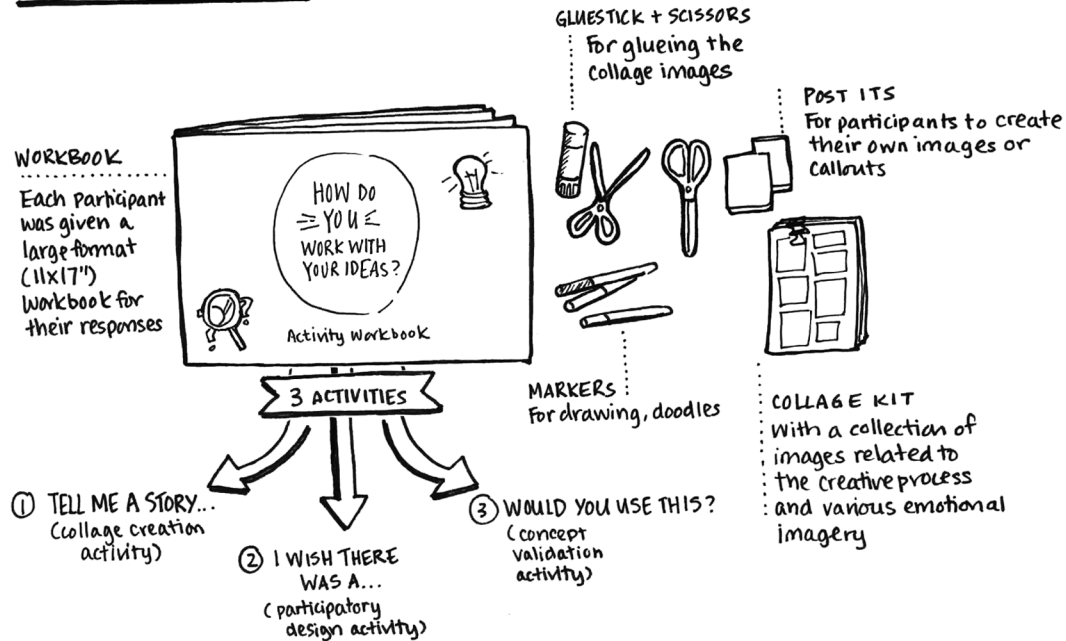 GLUESTICK + SCISSORS
For glueing the
collage images
POST ITS
For participants to create
their own images or
callouts
WORKBOOK
Each participant
was given a
large format
(11x17")
Workbook for
their responses
HOW DO
YOU
WORK WITH
YOUR IDEAS?
Activity Workbook
3 ACTIVITIES
MARKERS
For drawing, doodles
COLLAGE KIT
With a collection of
images related to
the creative process
and various emotional
imagery
1 TELL ME A STORY...
(collage creation
activity)
2 I WISH THERE
WAS A...
(participatory
design activity)
3 WOULD YOU USE THIS?
(concept
validation
activity)